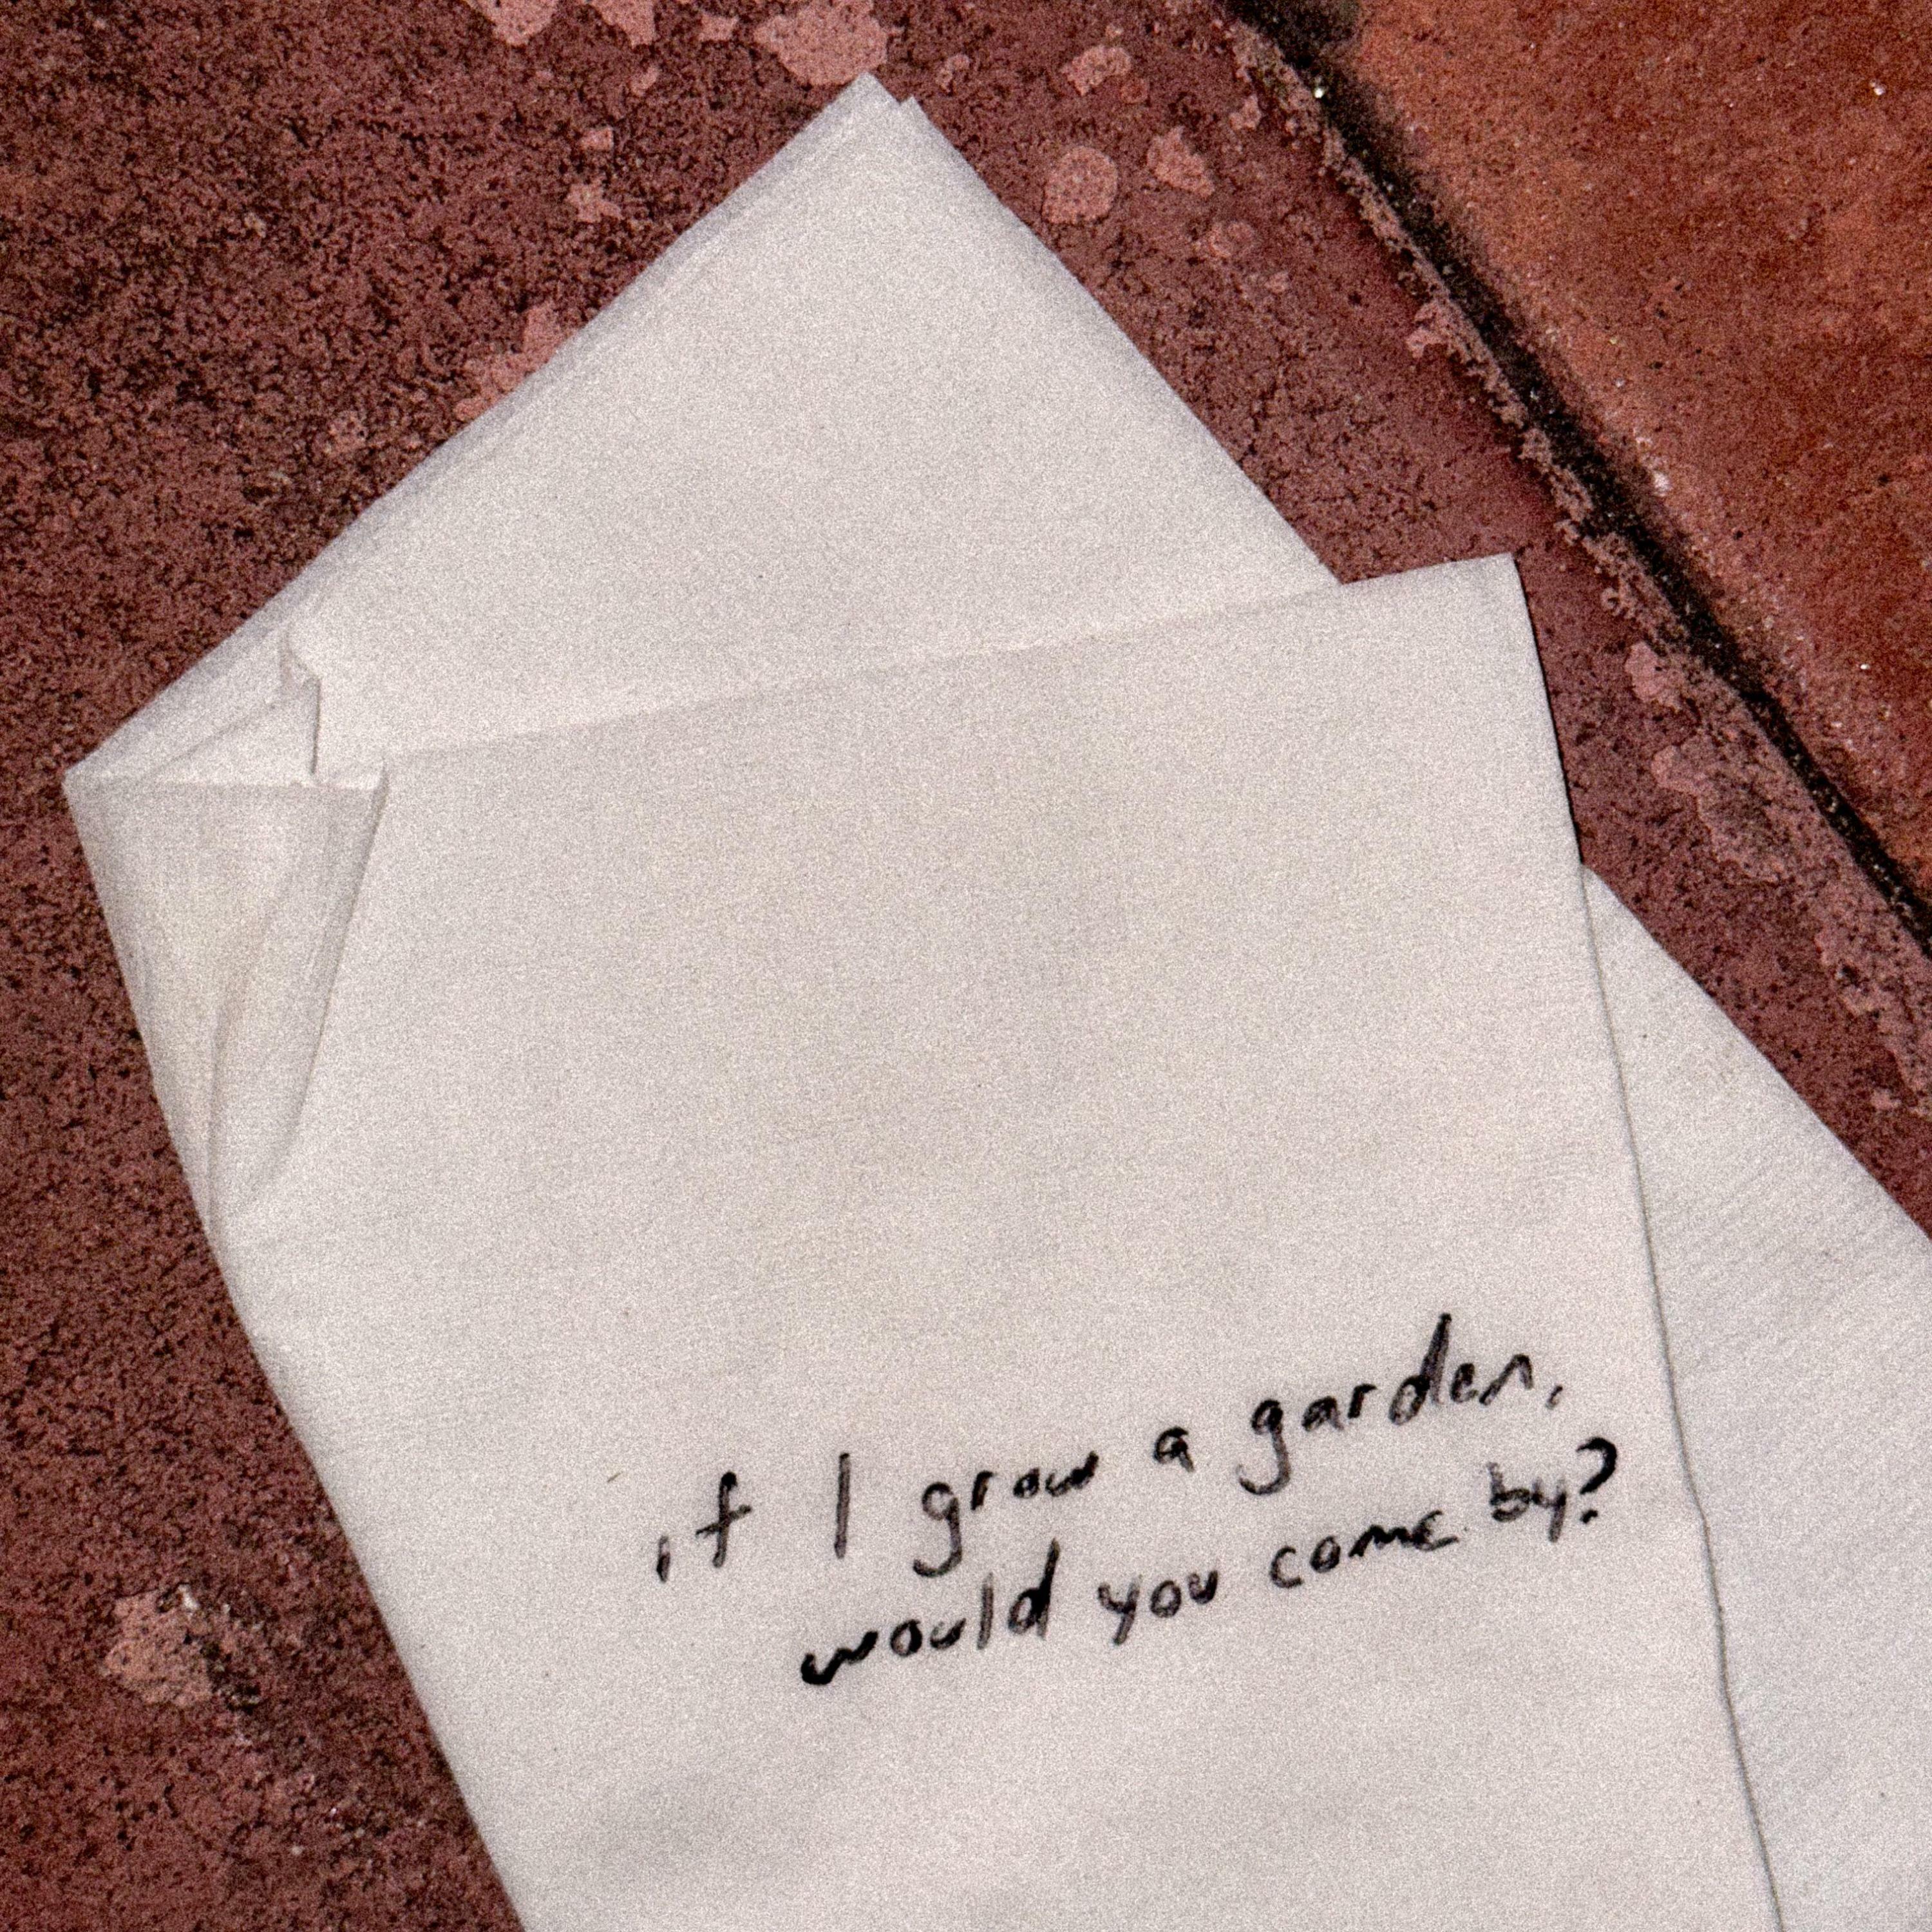 if I grow a garden,
would you come by?